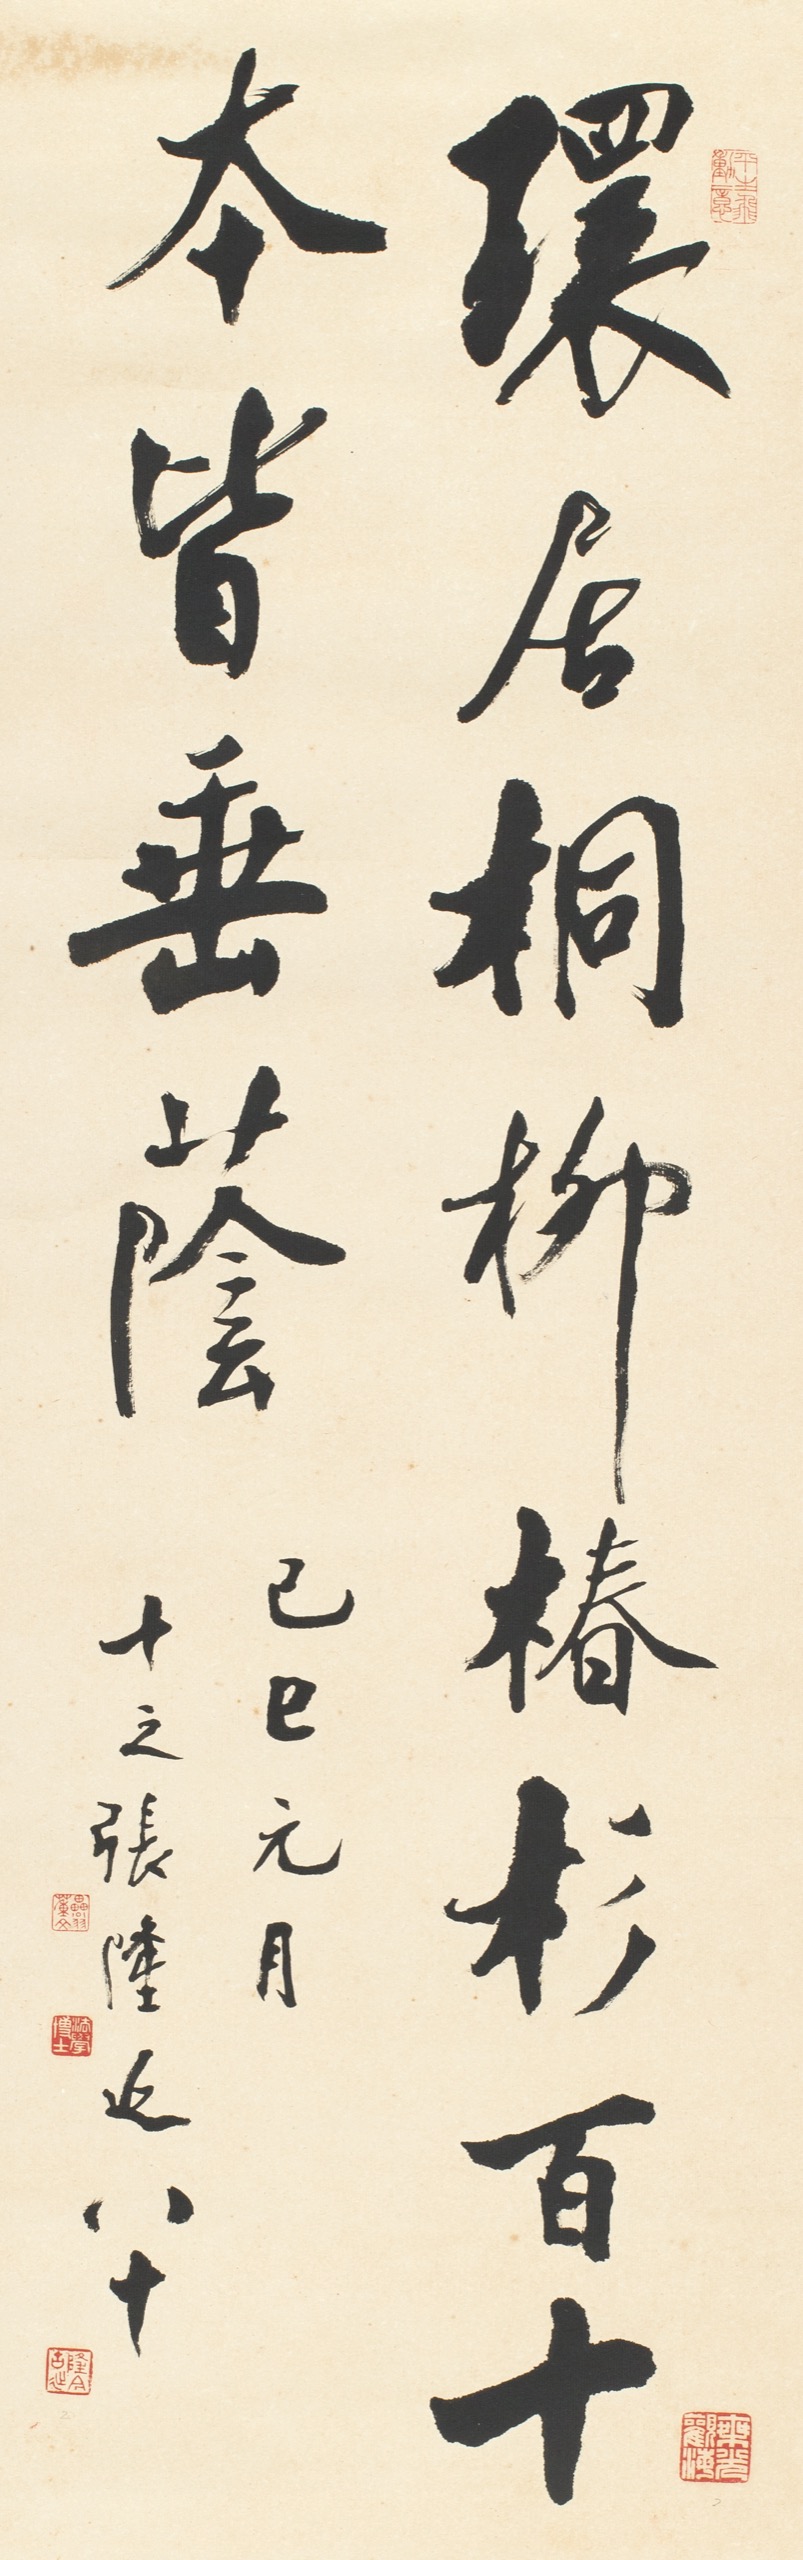 環居桐柳椿杉百十
本皆垂蔭
己巳元月
十之張隆延八十
法學博士